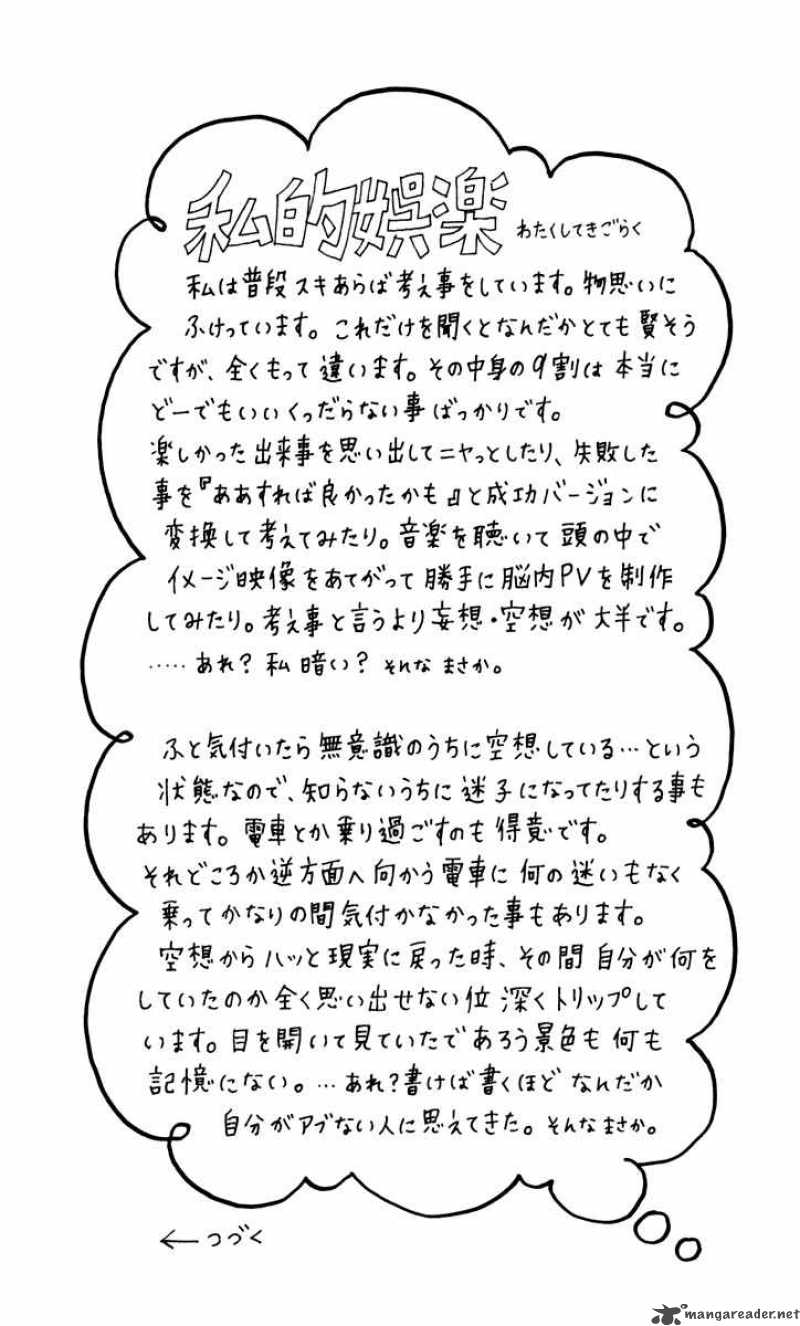 私的娯楽 わたくしてきごらく
私は普段スキあらば考え事をしています。物思いに
ふけっています。これだけを聞くとなんだかとても賢そう
ですが、全くもって違います。その中身の9割は本当に
どーでもいいくっだらない事ばっかりです。
楽しかった出来事を思い出してニヤっとしたり、失敗した
事を『ああすれば良かったかも』と成功バージョンに
変換して考えてみたり。音楽を聴いて頭の中で
イメージ映像をあてがって勝手に脳内PVを制作
してみたり。考え事と言うより妄想・空想が大半です。
‥‥‥あれ?私暗い?そんなまさか。
ふと気付いたら無意識のうちに空想している…という
状態なので、知らないうちに迷子になってたりする事も
あります。電車とか乗り過ごすのも得意です。
それどころか逆方面へ向かう電車に何の迷いもなく
乗ってかなりの間気付かなかった事もあります。
空想からハッと現実に戻った時、その間自分が何を
していたのか全く思い出せない位深くトリップして
います。目を開いて見ていたであろう景色も何も
記憶にない。…あれ?書けば書くほどなんだか
自分がアブない人に思えてきた。そんなまさか。
←つづく
mangareader.net